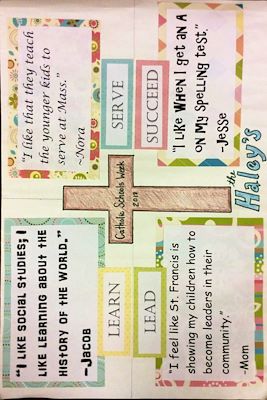 "I like social studies; I
like learning about the
history of the world."
-Jacob
"I like that they teach
the younger kids to
serve at Mass."
-Nora
LEARN
SERVE
Catholic Schools Week
2019
LEAD
SUCCEED
"I feel like St. Francis is
showing my children how to
become leaders in their
community."
-Mom
"I like when I get an A
on my spelling test."
-Jesse
the Haley's